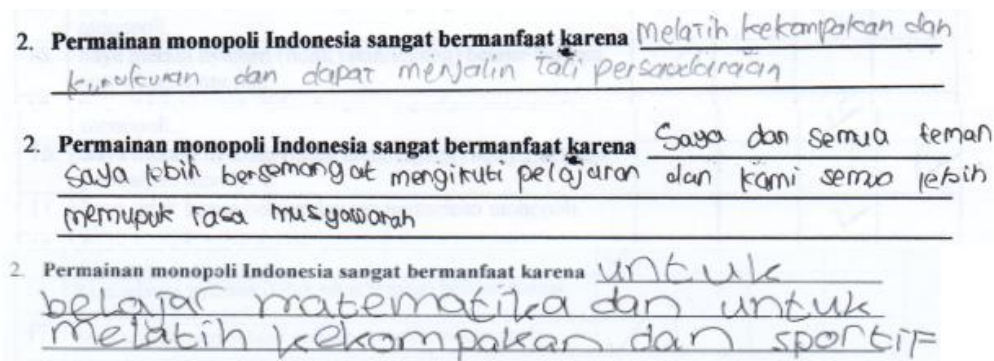 2. Permainan monopoli Indonesia sangat bermanfaat karena melatih kekompakan dan
kerukunan dan dapat menjalin tali persaudaraan
2. Permainan monopoli Indonesia sangat bermanfaat karena Saya dan semua teman
saya lebih bersemangat mengikuti pelajaran dan kami semua lebih
memupuk rasa musyawarah
2. Permainan monopoli Indonesia sangat bermanfaat karena untuk
belajar matematika dan untuk
melatih kekompakan dan sportif